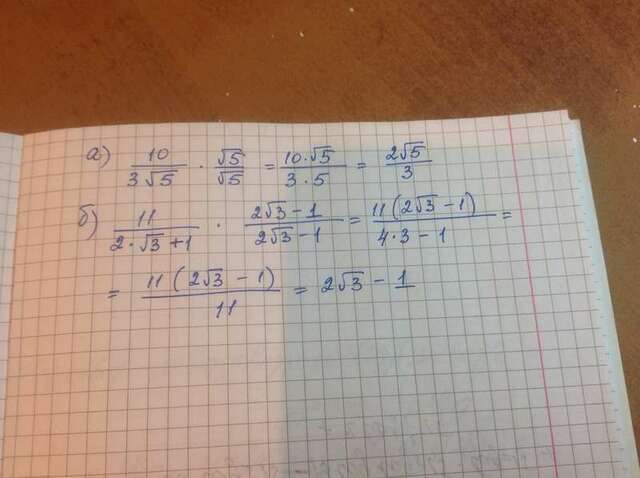 а) 10/(3√5) · √5/√5 = (10·√5)/(3·5) = 2√5/3
б) 11/(2·√3+1) · (2√3-1)/(2√3-1) = 11(2√3-1)/(4·3-1) =
= 11(2√3-1)/11 = 2√3-1